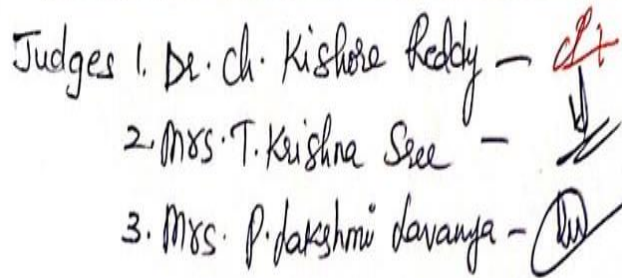 Judges 1. Dr. Ch. Kishore Reddy -
2. Mrs. T. Krishna Sree -
3. Mrs. P. Lakshmi Lavanya -